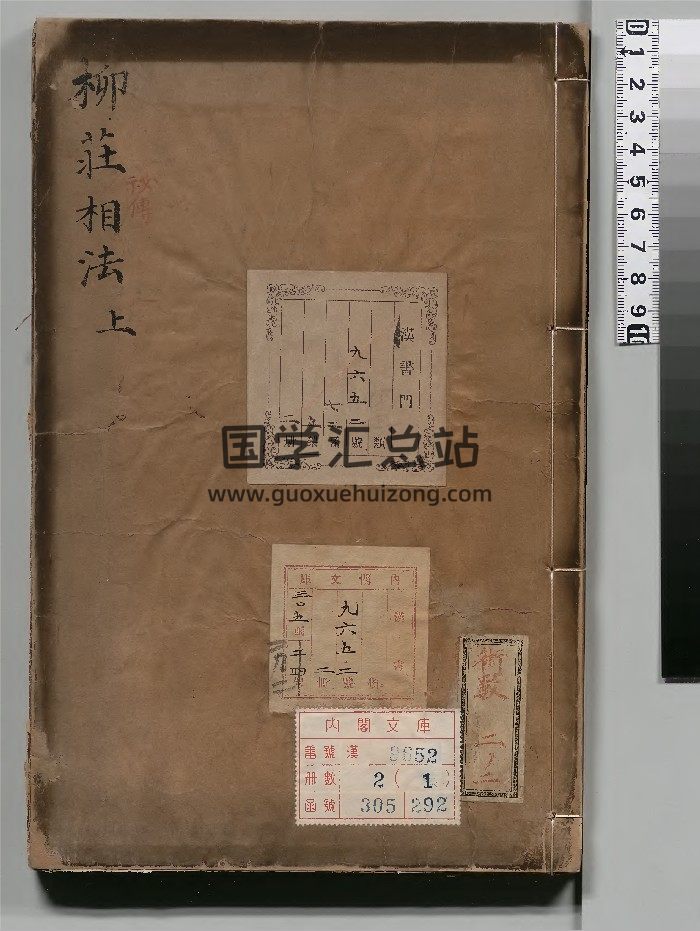 柳莊相法 上
秘傳
漢書門
九六五二
類
號
国学汇总站
www.guoxuehuizong.com
内閣文庫
漢書
九六五二
三〇五
術数
二ノ二
内閣文庫
番號 漢 9652
冊數 2 (1)
函號 305 292
0 1 2 3 4 5 6 7 8 9 10